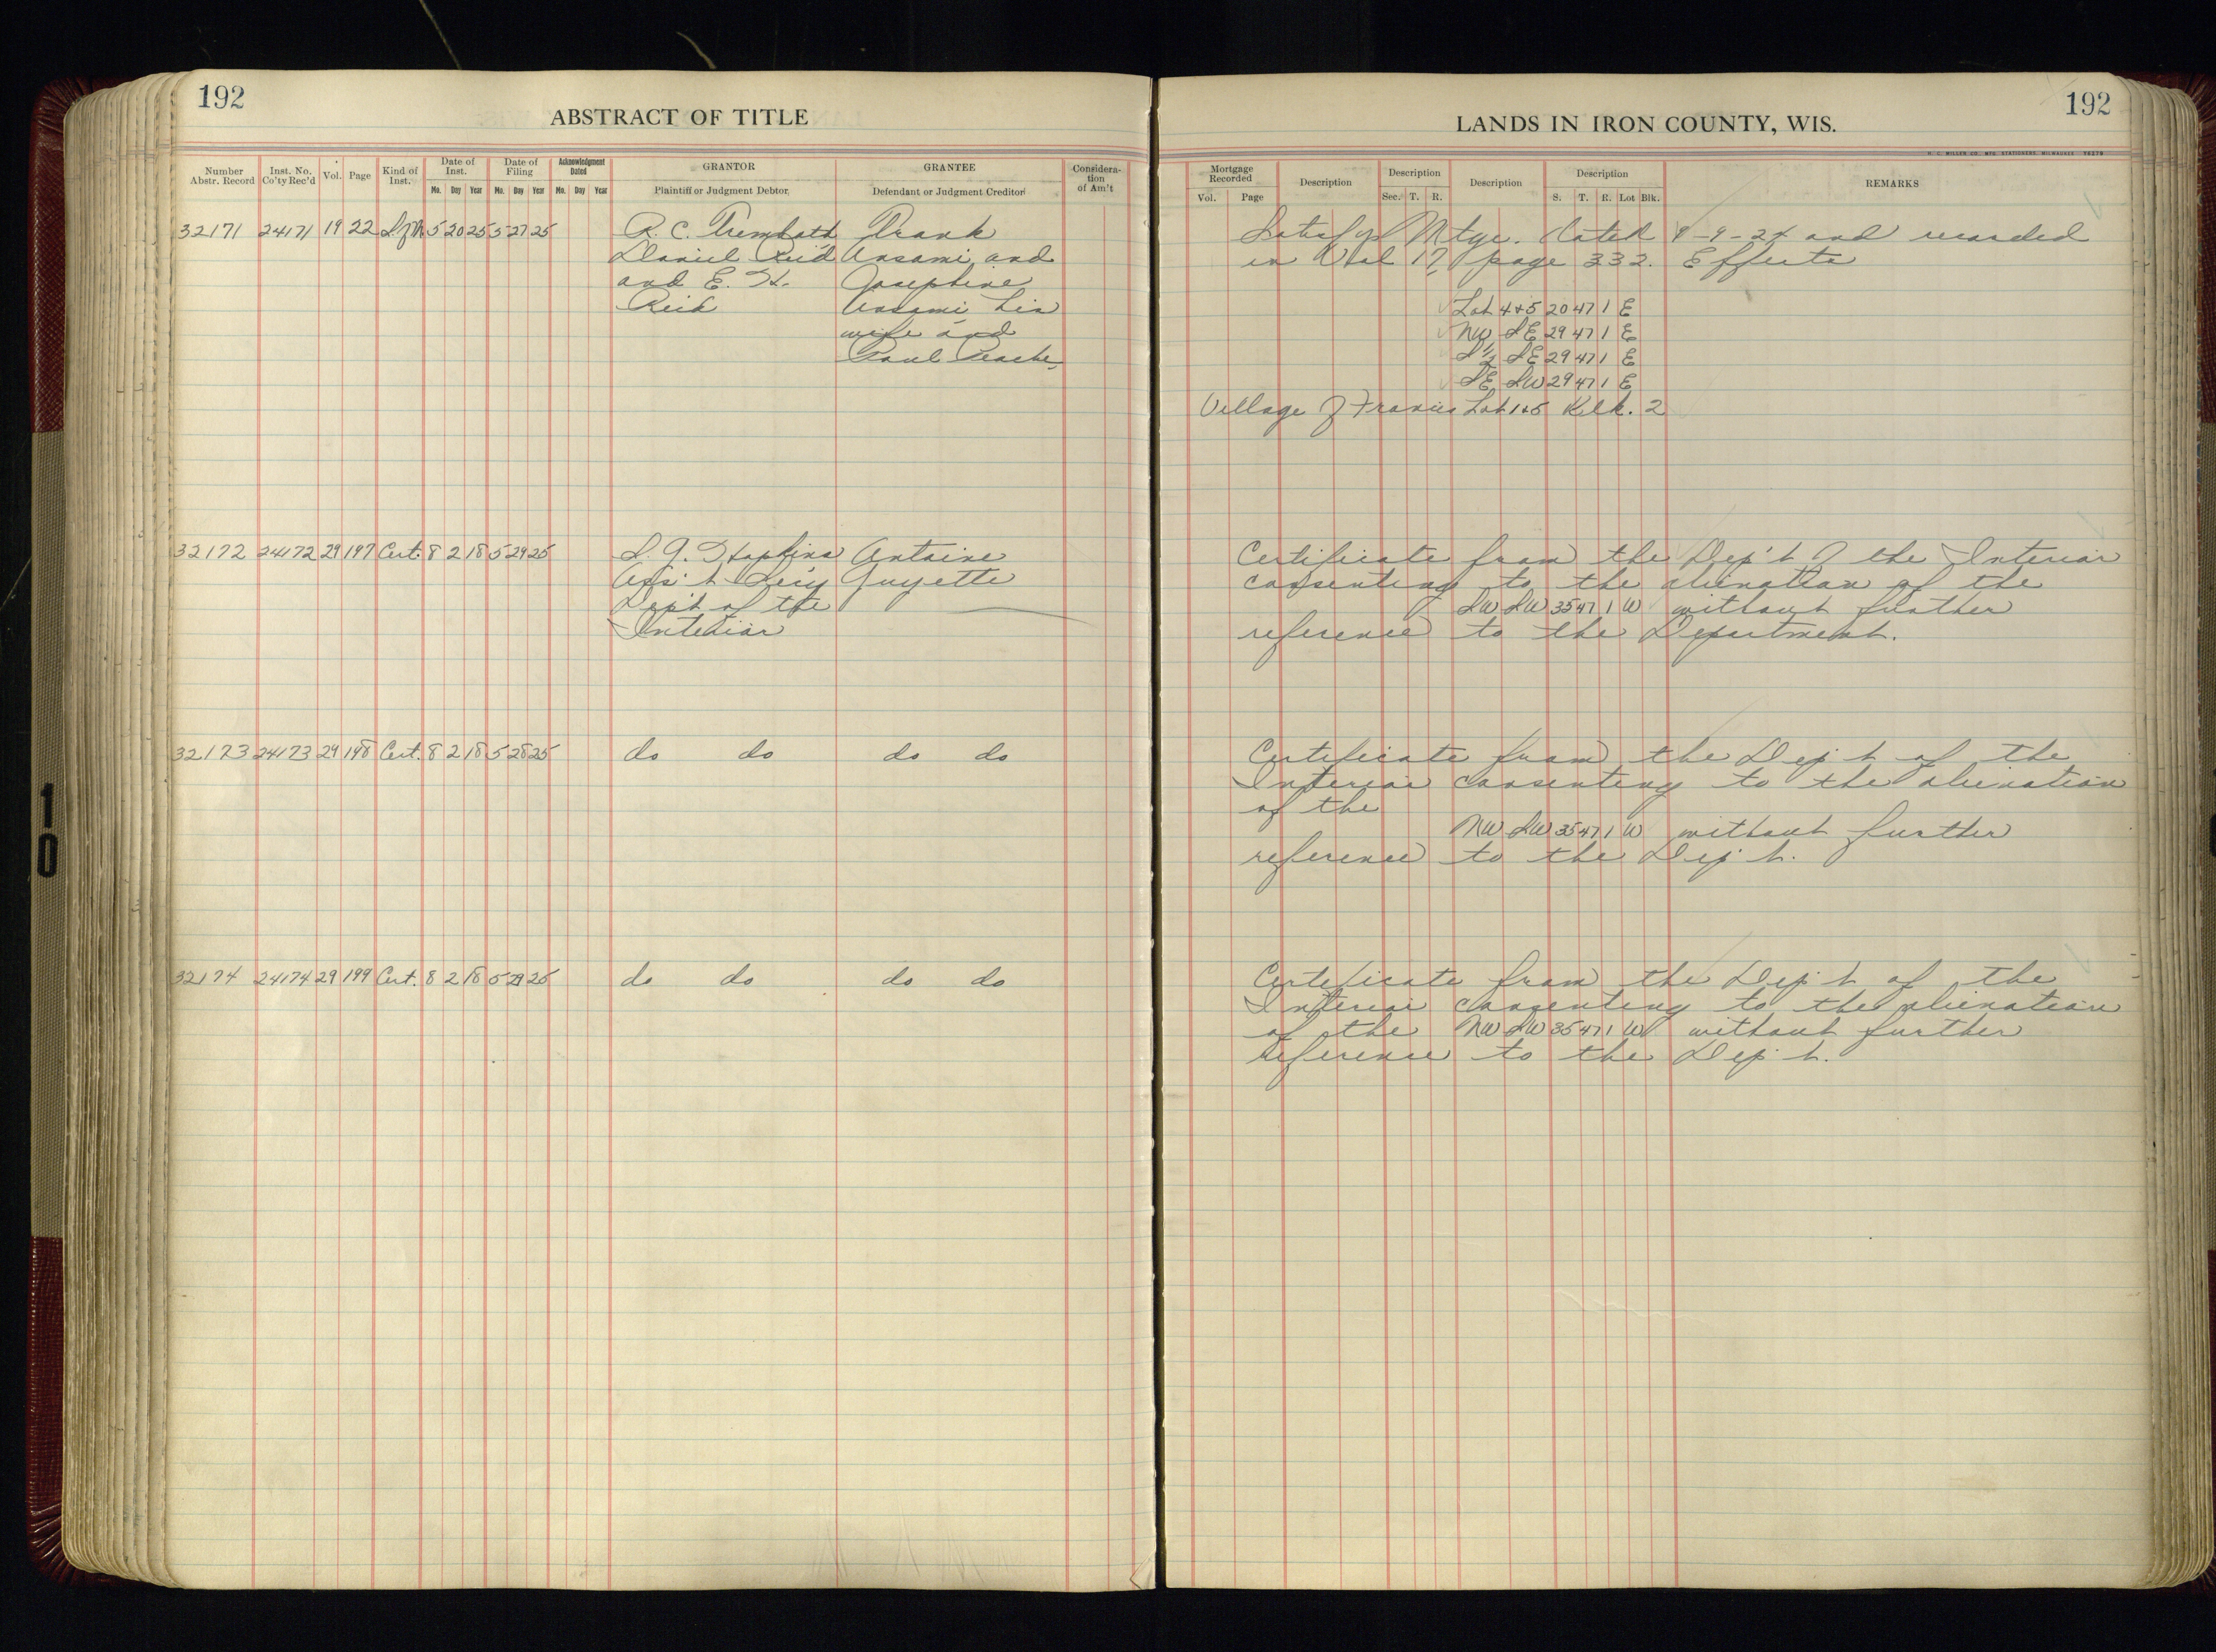 192
ABSTRACT OF TITLE
Number Abstr. Record
Inst. No. Co'ty Rec'd
Vol.
Page
Kind of Inst.
Date of Inst.
Mo. Day Year
Date of Filing
Mo. Day Year
Acknowledgment Dated
Mo. Day Year
GRANTOR
Plaintiff or Judgment Debtor
GRANTEE
Defendant or Judgment Creditor
Consideration of Am't
32171 24171 19 22 S. of M. 5 20 25 5 27 25 R. C. Trembath Frank
Daniel Reid Ansami and
and E. H. Josephine
Reid Ansami his
wife and
Paul
32172 24172 29 197 Cert. 8 2 18 5 29 25 S. G. Hopkins Antoine
Ass't Sec'y Guyette
Dep't of the
Interior
32173 24173 29 198 Cert. 8 2 18 5 28 25 do do do do
32174 24174 29 199 Cert. 8 2 18 5 29 25 do do do do
192
LANDS IN IRON COUNTY, WIS.
H. C. MILLER CO., MFG. STATIONERS, MILWAUKEE
Mortgage Recorded
Vol. Page
Description
Description
Sec. T. R.
Description
Description
S. T. R. Lot Blk.
REMARKS
Satisfys Mtge. dated 9-9-24 and recorded
in Vol 17, page 332. Effects
Lot 4+5 20 47 1 E
NW SE 29 47 1 E
S 1/2 SE 29 47 1 E
SE SW 29 47 1 E
Village of Francis Lot 1+5 Blk. 2
Certificate from the Dep't of the Interior
consenting to the alienation of the
SW SW 35 47 1 W without further
reference to the Department.
Certificate from the Dep't of the
Interior consenting to the alienation
of the
NW SW 35 47 1 W without further
reference to the Dep't.
Certificate from the Dep't of the
Interior consenting to the alienation
of the NW SW 35 47 1 W without further
reference to the Dep't.
10